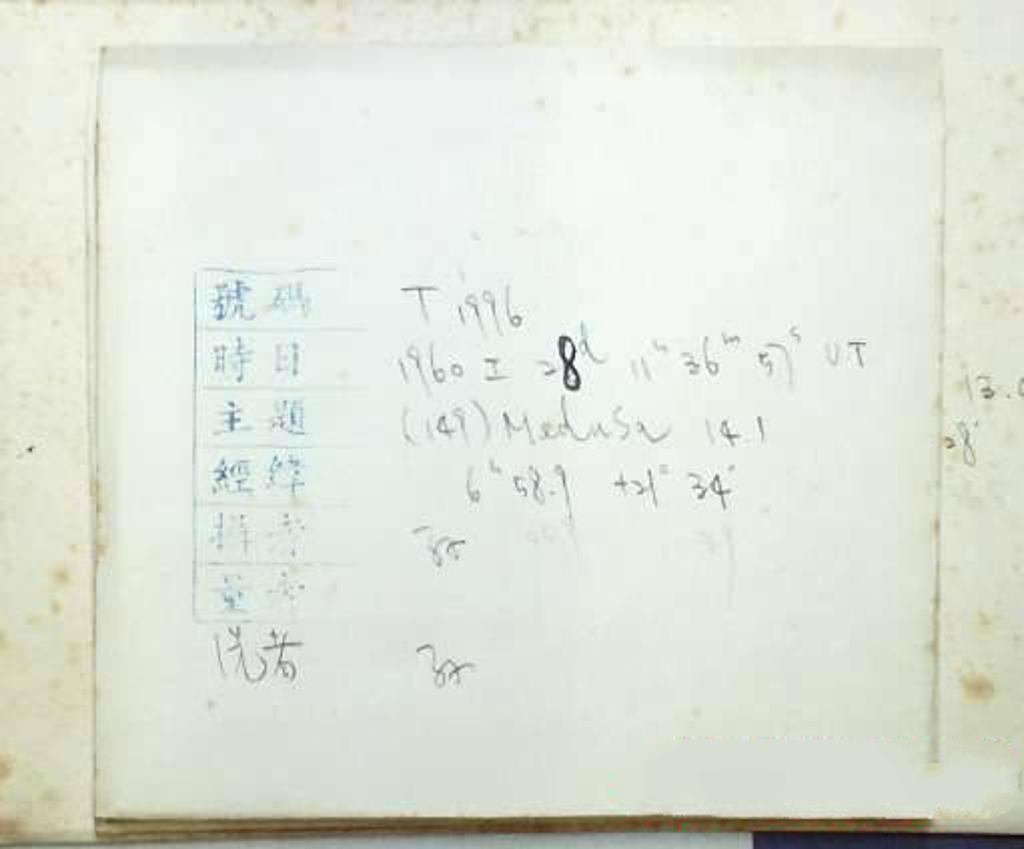 號碼 T 1996
時日 1960 I 28ᵈ 11ʰ 36ᵐ 57ˢ UT
主題 (149) Medusa 14.1
經緯 6ʰ 58.9 +21° 34′
攝者
量者
洗者
13.0
28′